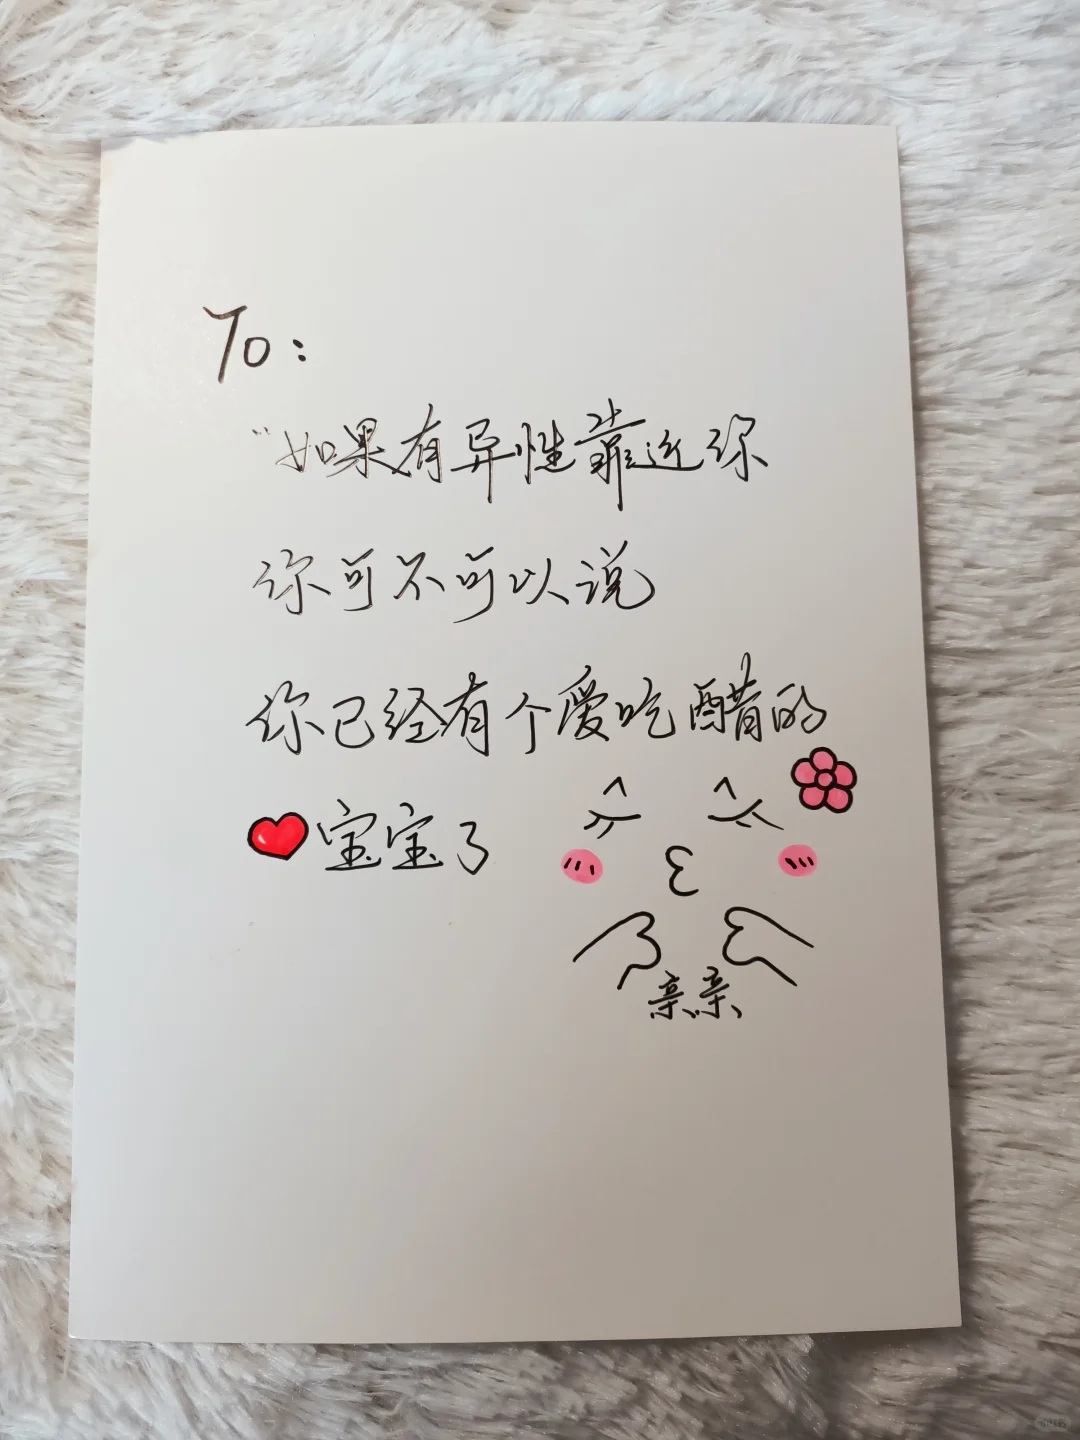 To：
“如果有异性靠近你
你可不可以说
你已经有个爱吃醋的
宝宝了
亲亲